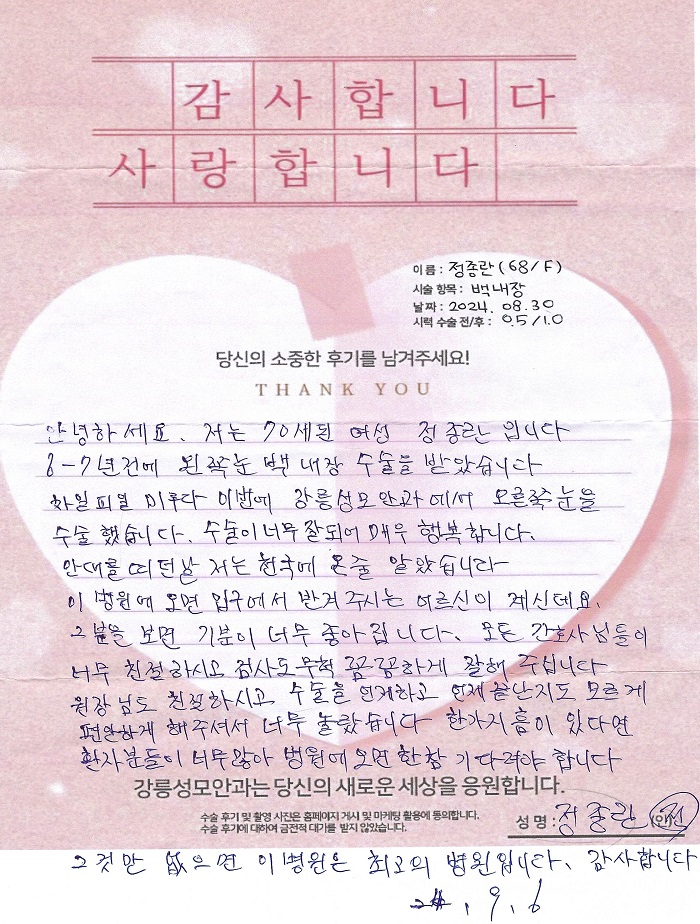 감사합니다
사랑합니다
이름 : 정종란 (68/F)
시술 항목 : 백내장
날짜 : 2024. 08.30
시력 수술 전/후 : 0.5/1.0
당신의 소중한 후기를 남겨주세요!
THANK YOU
안녕하세요. 저는 70세된 여성 정종란 입니다
6-7년전에 왼쪽눈 백내장 수술을 받았습니다
차일피일 미루다 이번에 강릉성모안과에서 오른쪽눈을
수술했습니다. 수술이 너무 잘되어 매우 행복합니다.
안대를 띠던날 저는 천국에 온줄 알았습니다
이 병원에 오면 입구에서 반겨주시는 어르신이 계신데요.
그분을 보면 기분이 너무 좋아집니다. 모든 간호사님들이
너무 친절하시고 검사도 무척 꼼꼼하게 잘해 주십니다
원장님도 친절하시고 수술을 언제하고 언제 끝난지도 모르게
편안하게 해주셔서 너무 놀랐습니다 한가지 흠이 있다면
환자분들이 너무많아 병원에 오면 한참 기다려야 합니다
강릉성모안과는 당신의 새로운 세상을 응원합니다.
수술 후기 및 촬영 사진은 홈페이지 게시 및 마케팅 활용에 동의합니다.
수술 후기에 대하여 금전적 대가를 받지 않았습니다.
성명 : 정종란 (인)
그것만 없으면 이병원은 최고의 병원입니다. 감사합니다
24. 9. 6